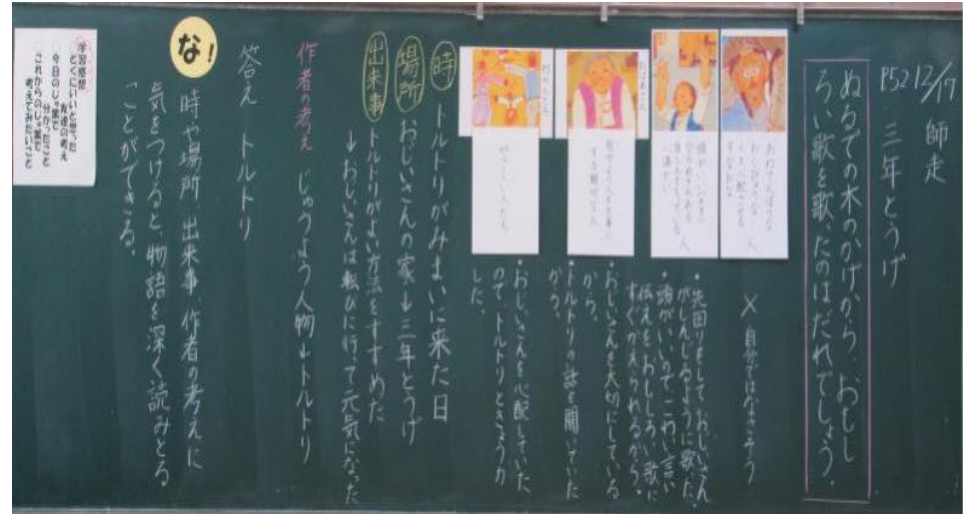 12/17 師走
P52 三年とうげ
ぬるでの木のかげから、おもし
ろい歌を歌ったのはだれでしょう。
× 自分ではなさそう
・先回りをして、おじいさん
がしんじるように歌った。
・頭がいいのでこわい言い
伝えをおもしろい歌に
すぐかえられるから。
・おじいさんを大切にしている
から。
・トルトリの話を聞いていた
から。
・おじいさんを心配していた
ので、トルトリときょう力
した。
おばあさん
やさしい人たち
時 トルトリがみまいに来た日
場所 おじいさんの家→三年とうげ
出来事 トルトリがよい方法をすすめた
→おじいさんは転びに行って元気になった
作者の考え じゅうよう人物→トルトリ
答え トルトリ
な!
時や場所、出来事、作者の考えに
気をつけると、物語を深く読みとる
ことができる。
学習感想
とくにいいと思った
友達の考え
今日のじゅ業で
分かったこと
これからのじゅ業で
考えてみたいこと